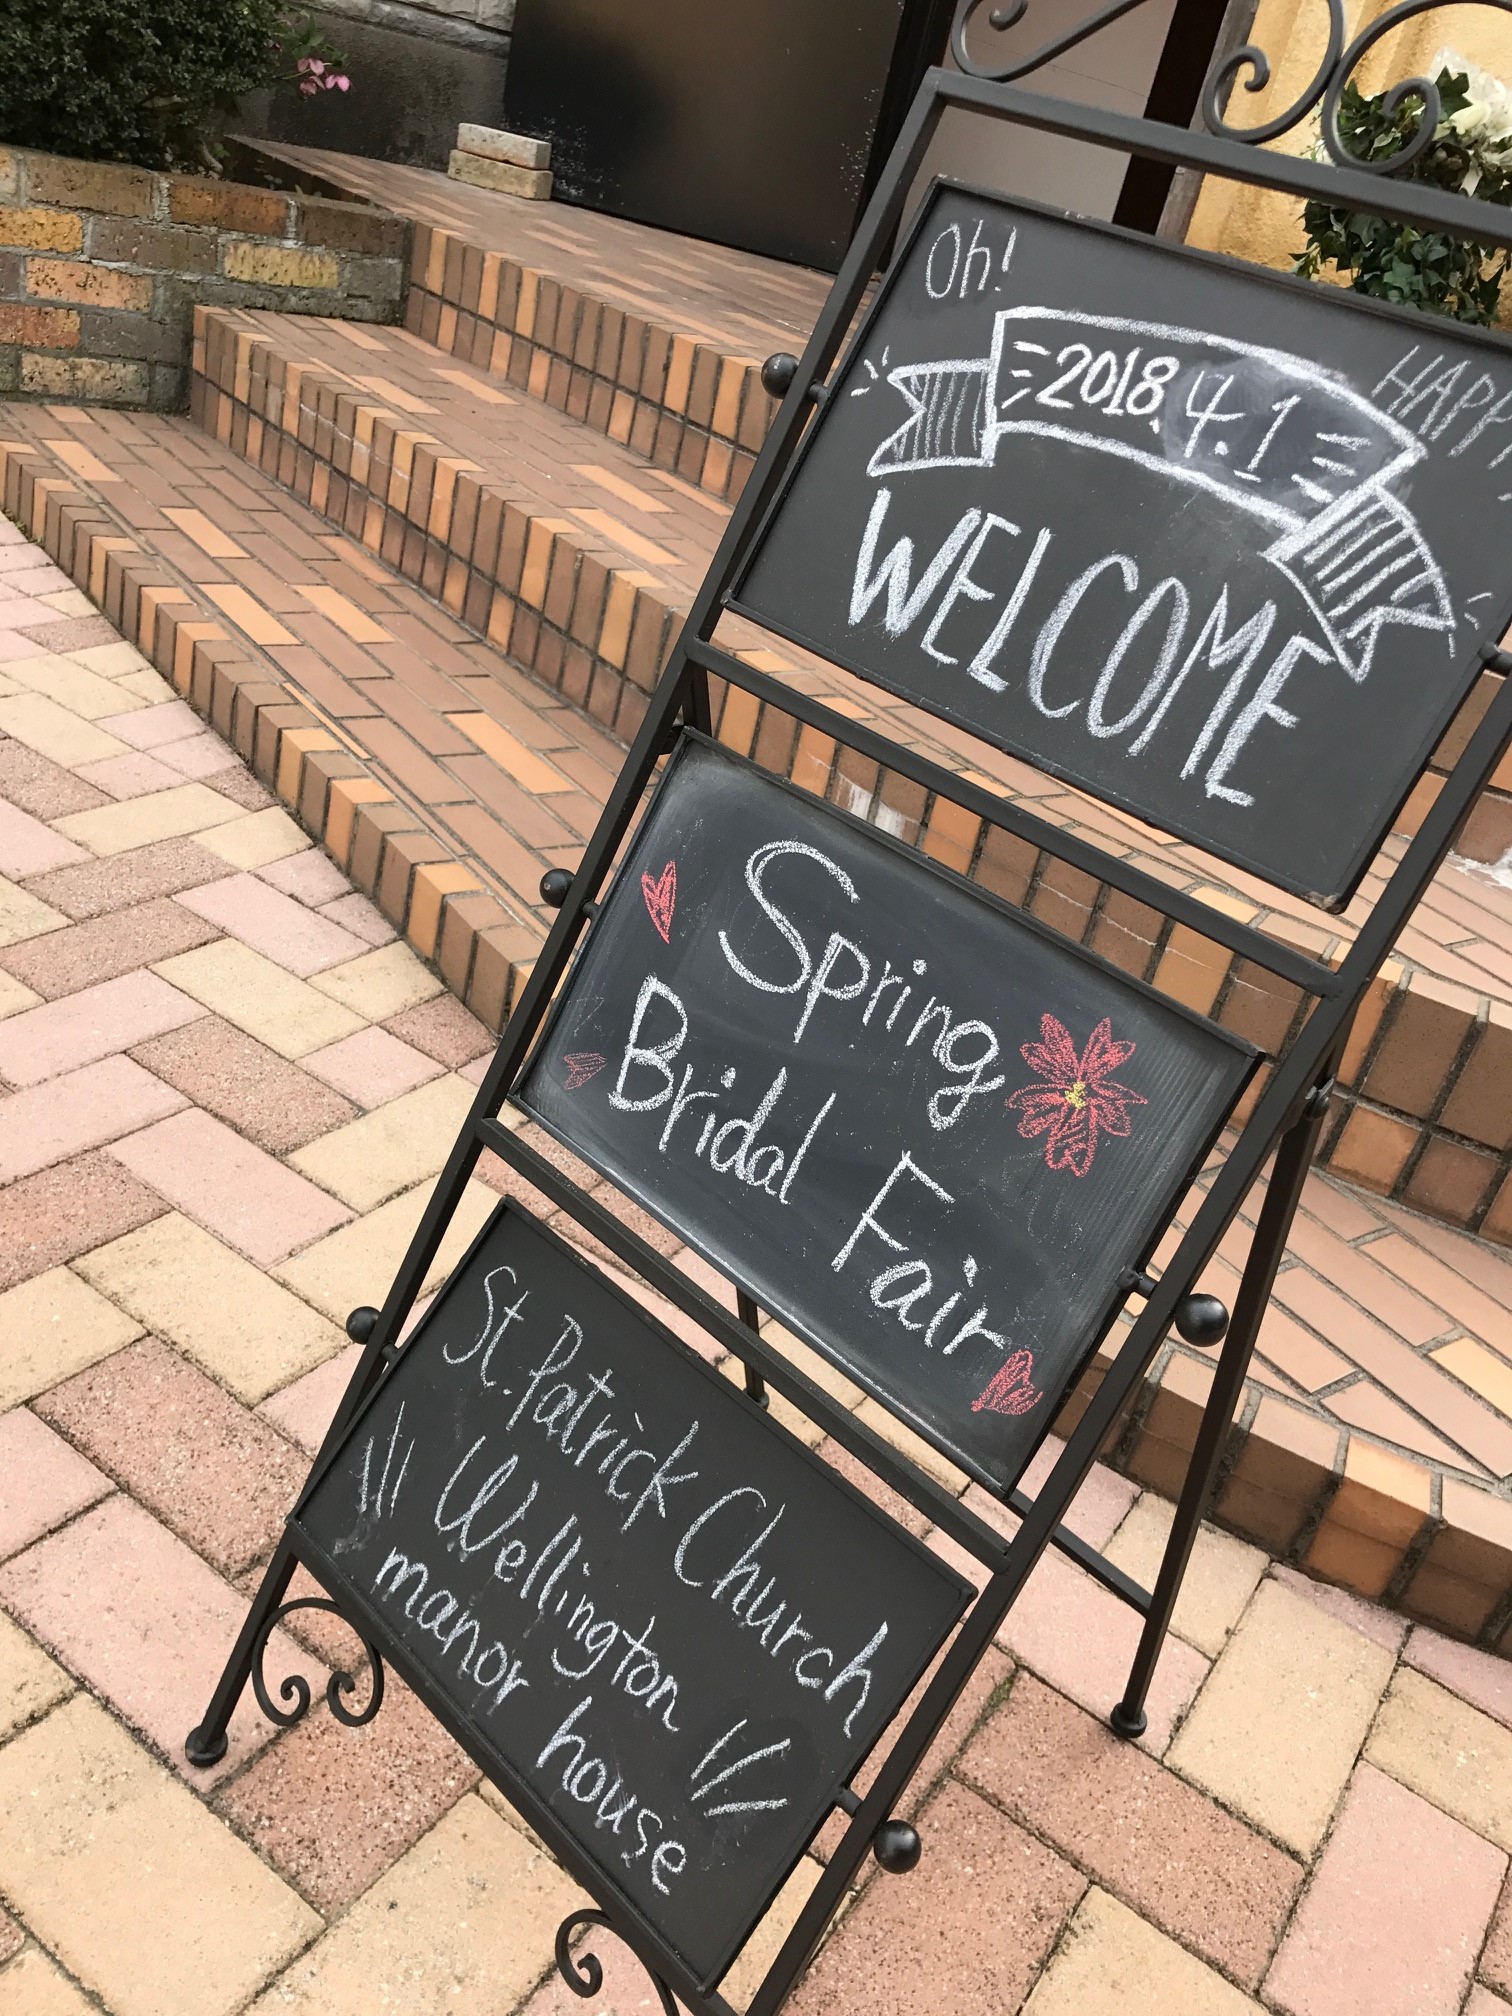 Oh!
2018.4.1
HAPP
WELCOME
Spring
Bridal Fair
St. Patrick Church
Wellington
manor house